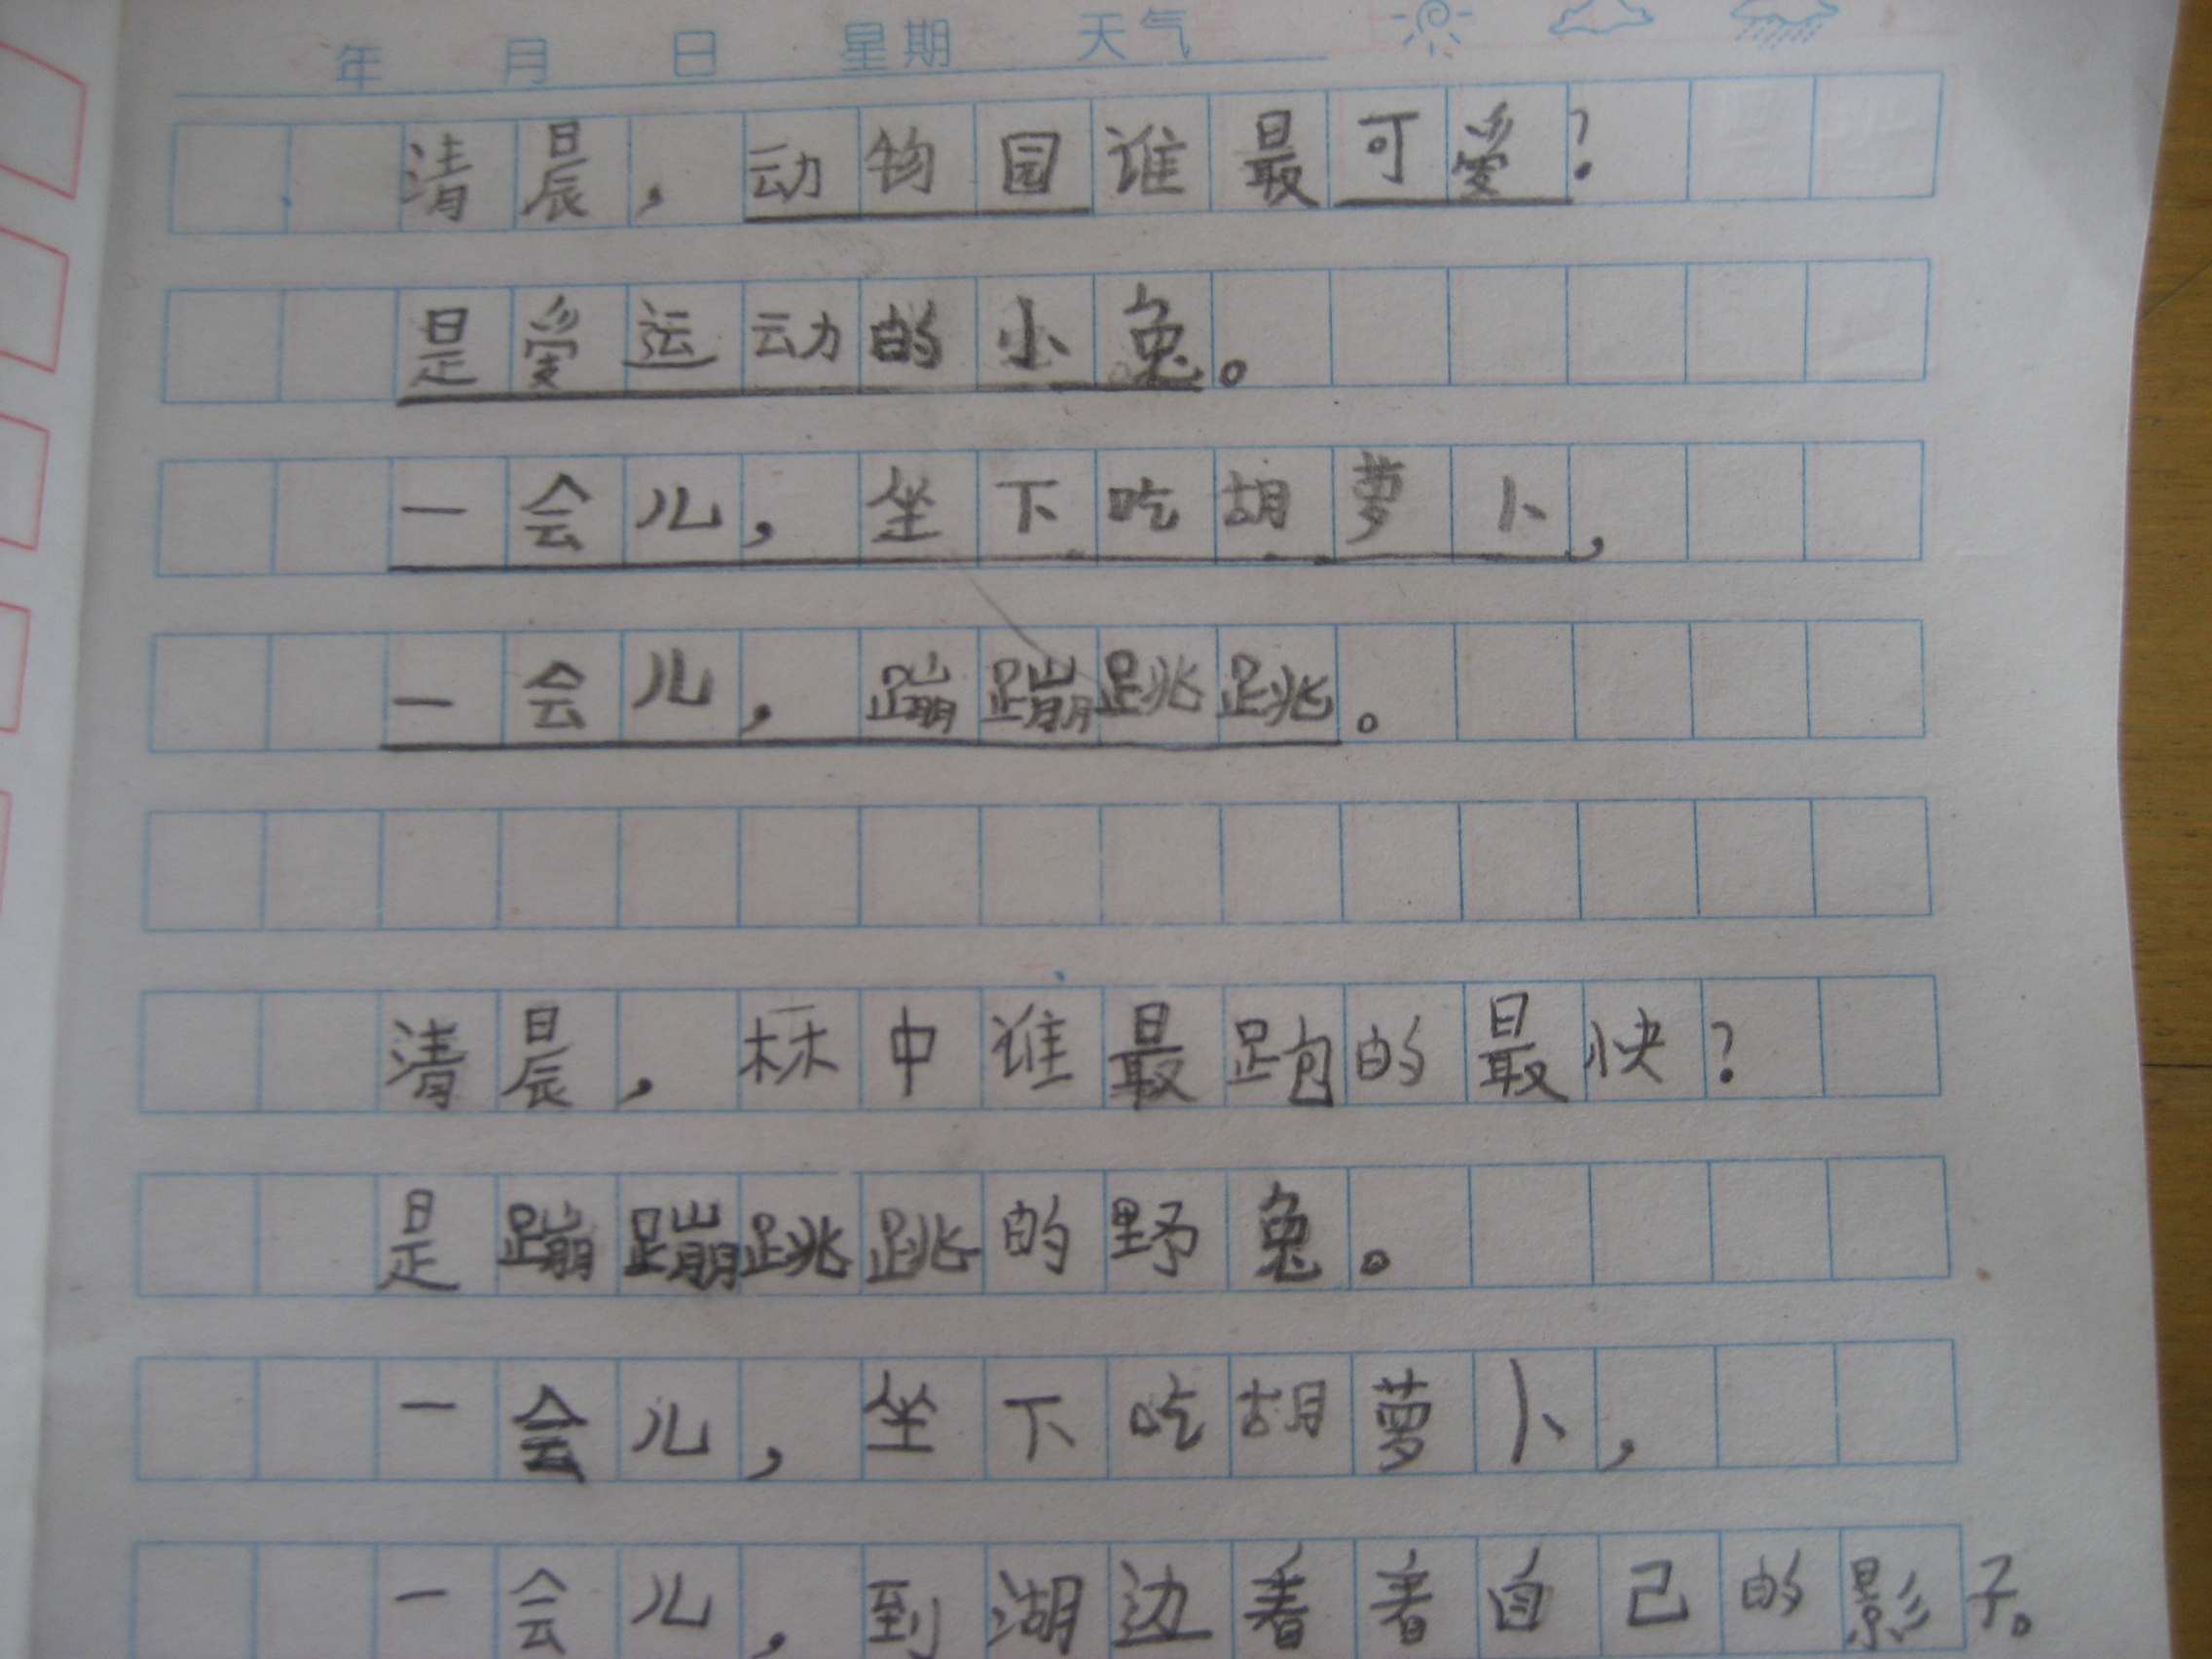 年 月 日 星期 天气
清晨，动物园谁最可爱？
是爱运动的小兔。
一会儿，坐下吃胡萝卜，
一会儿，蹦蹦跳跳。
清晨，林中谁最跑的最快？
是蹦蹦跳跳的野兔。
一会儿，坐下吃胡萝卜，
一会儿，到湖边看着自己的影子。